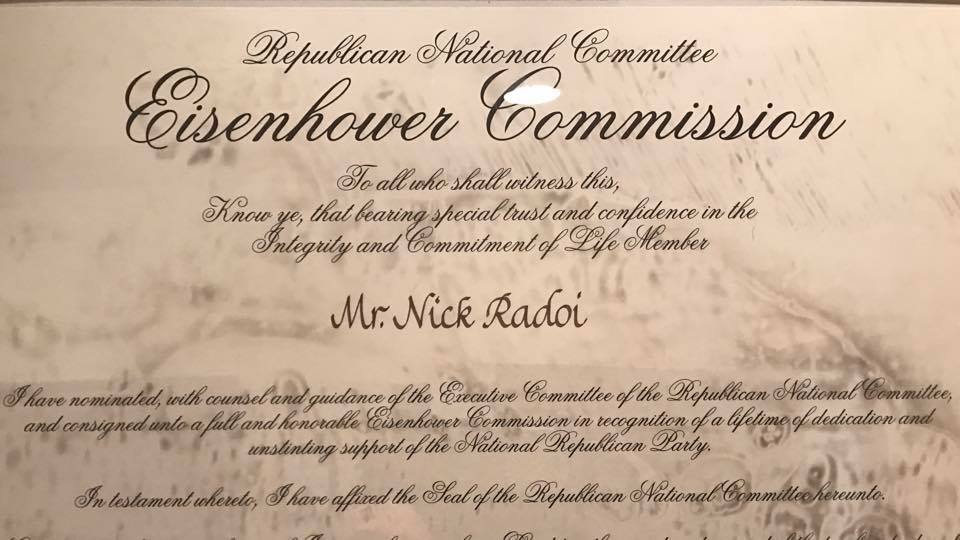 Republican National Committee
Eisenhower Commission
To all who shall witness this,
Know ye, that bearing special trust and confidence in the
Integrity and Commitment of Life Member
Mr. Nick Radoi
I have nominated, with counsel and guidance of the Executive Committee of the Republican National Committee,
and consigned unto a full and honorable Eisenhower Commission in recognition of a lifetime of dedication and
unstinting support of the National Republican Party.
In testament whereto, I have affixed the Seal of the Republican National Committee hereunto.